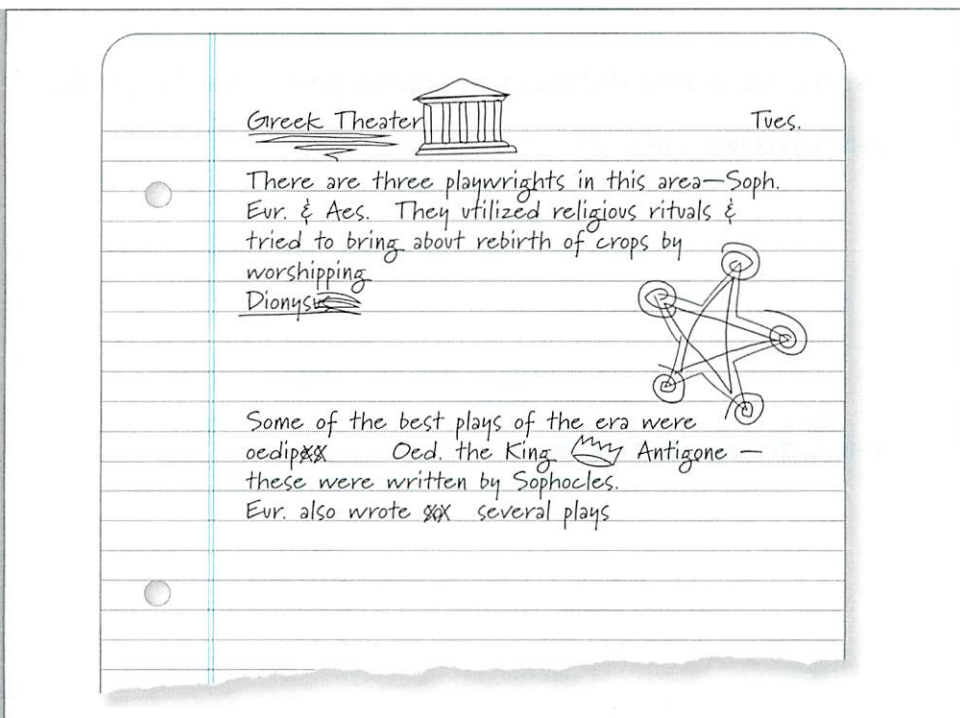 Greek Theater Tues.
There are three playwrights in this area—Soph.
Eur. & Aes. They utilized religious rituals &
tried to bring about rebirth of crops by
worshipping
Dionysus
Some of the best plays of the era were
oedip Oed. the King Antigone —
these were written by Sophocles.
Eur. also wrote several plays